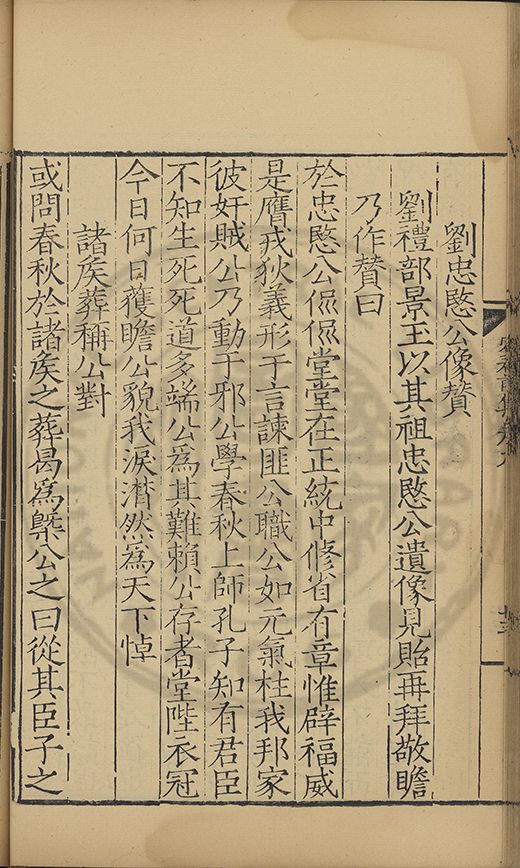 劉忠愍公像贊
劉禮部景玉以其祖忠愍公遺像見貽再拜敬瞻
乃作贊曰
於忠愍公侃侃堂堂在正統中脩省有章惟辟福威
是膺戎狄義形于言諫匪公職公如元氣柱我邦家
彼奸賊公乃動于邪公學春秋上師孔子知有君臣
不知生死死道多端公爲其難賴公存者堂陛衣冠
今日何日獲瞻公貌我淚潸然爲天下悼
諸矦葬稱公對
或問春秋於諸矦之葬曷爲槩公之曰從其臣子之